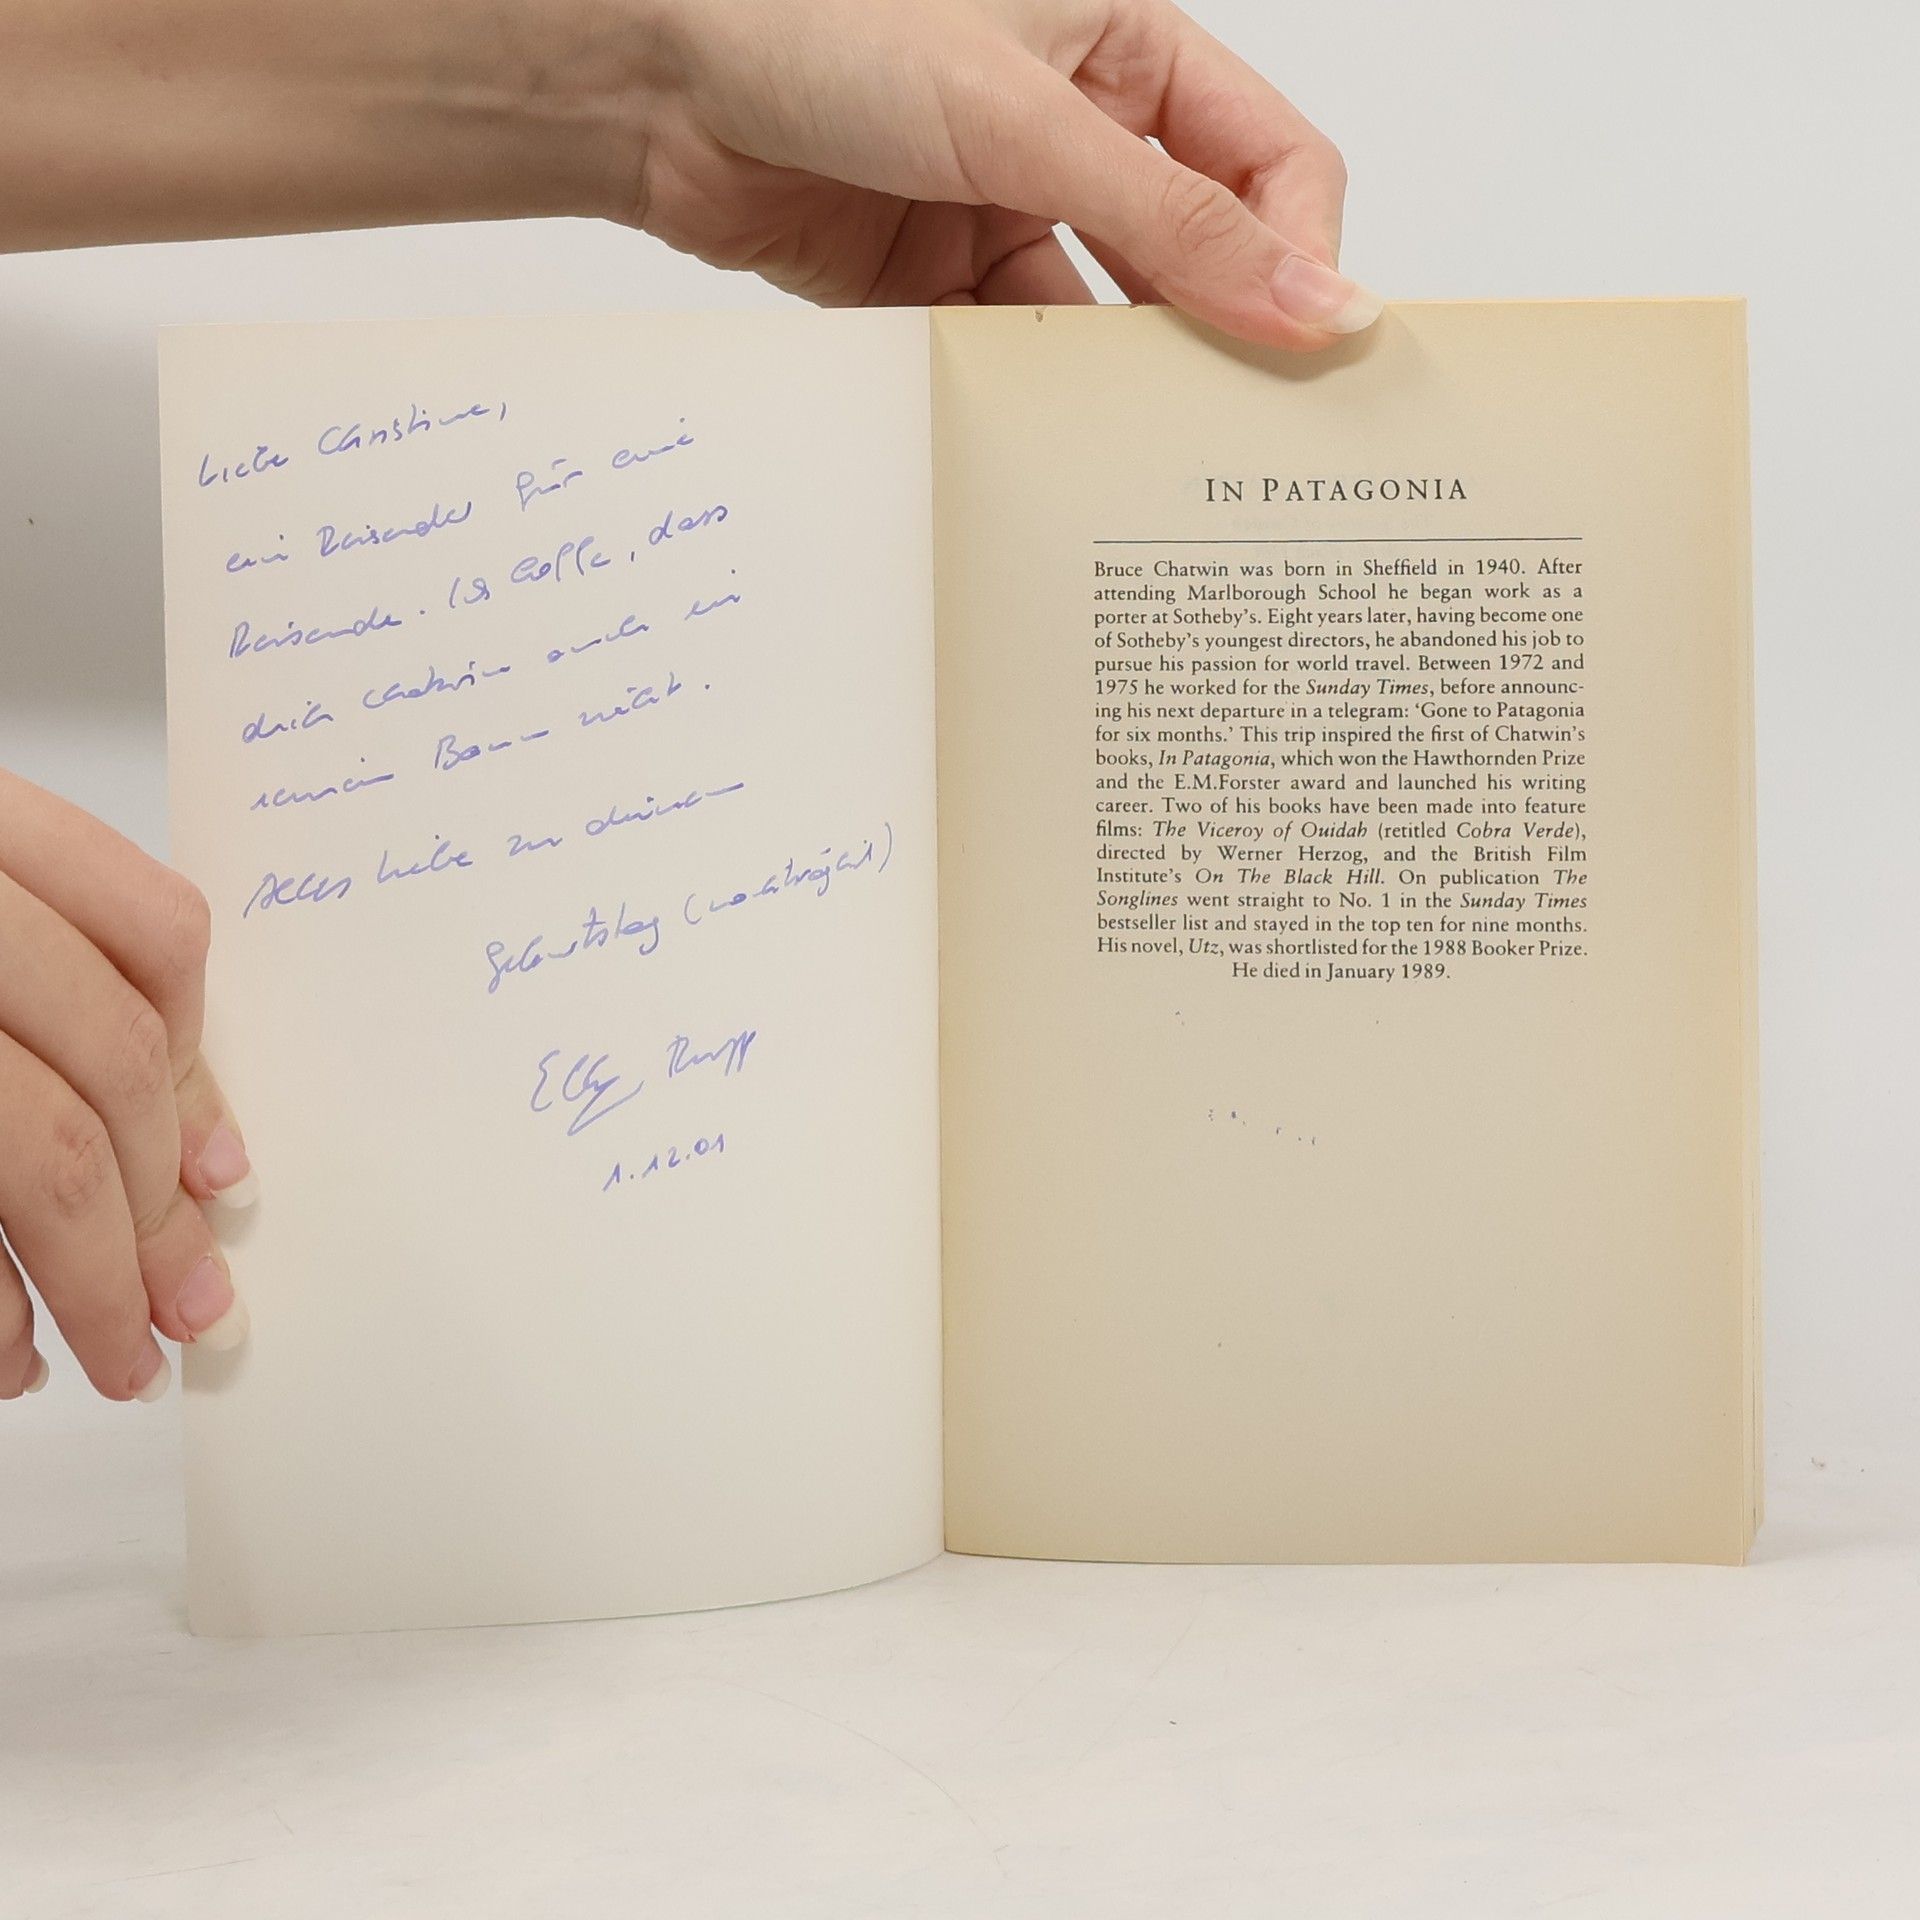 Liebe Christine,
ein Reisender für eine
Reisende. Ich hoffe, dass
dich Chatwin auch in
seinen Bann zieht.
Alles Liebe zu deinem
Geburtstag (nachträglich)
1.12.01
IN PATAGONIA
Bruce Chatwin was born in Sheffield in 1940. After
attending Marlborough School he began work as a
porter at Sotheby's. Eight years later, having become one
of Sotheby's youngest directors, he abandoned his job to
pursue his passion for world travel. Between 1972 and
1975 he worked for the Sunday Times, before announc-
ing his next departure in a telegram: ‘Gone to Patagonia
for six months.’ This trip inspired the first of Chatwin's
books, In Patagonia, which won the Hawthornden Prize
and the E.M.Forster award and launched his writing
career. Two of his books have been made into feature
films: The Viceroy of Ouidah (retitled Cobra Verde),
directed by Werner Herzog, and the British Film
Institute's On The Black Hill. On publication The
Songlines went straight to No. 1 in the Sunday Times
bestseller list and stayed in the top ten for nine months.
His novel, Utz, was shortlisted for the 1988 Booker Prize.
He died in January 1989.